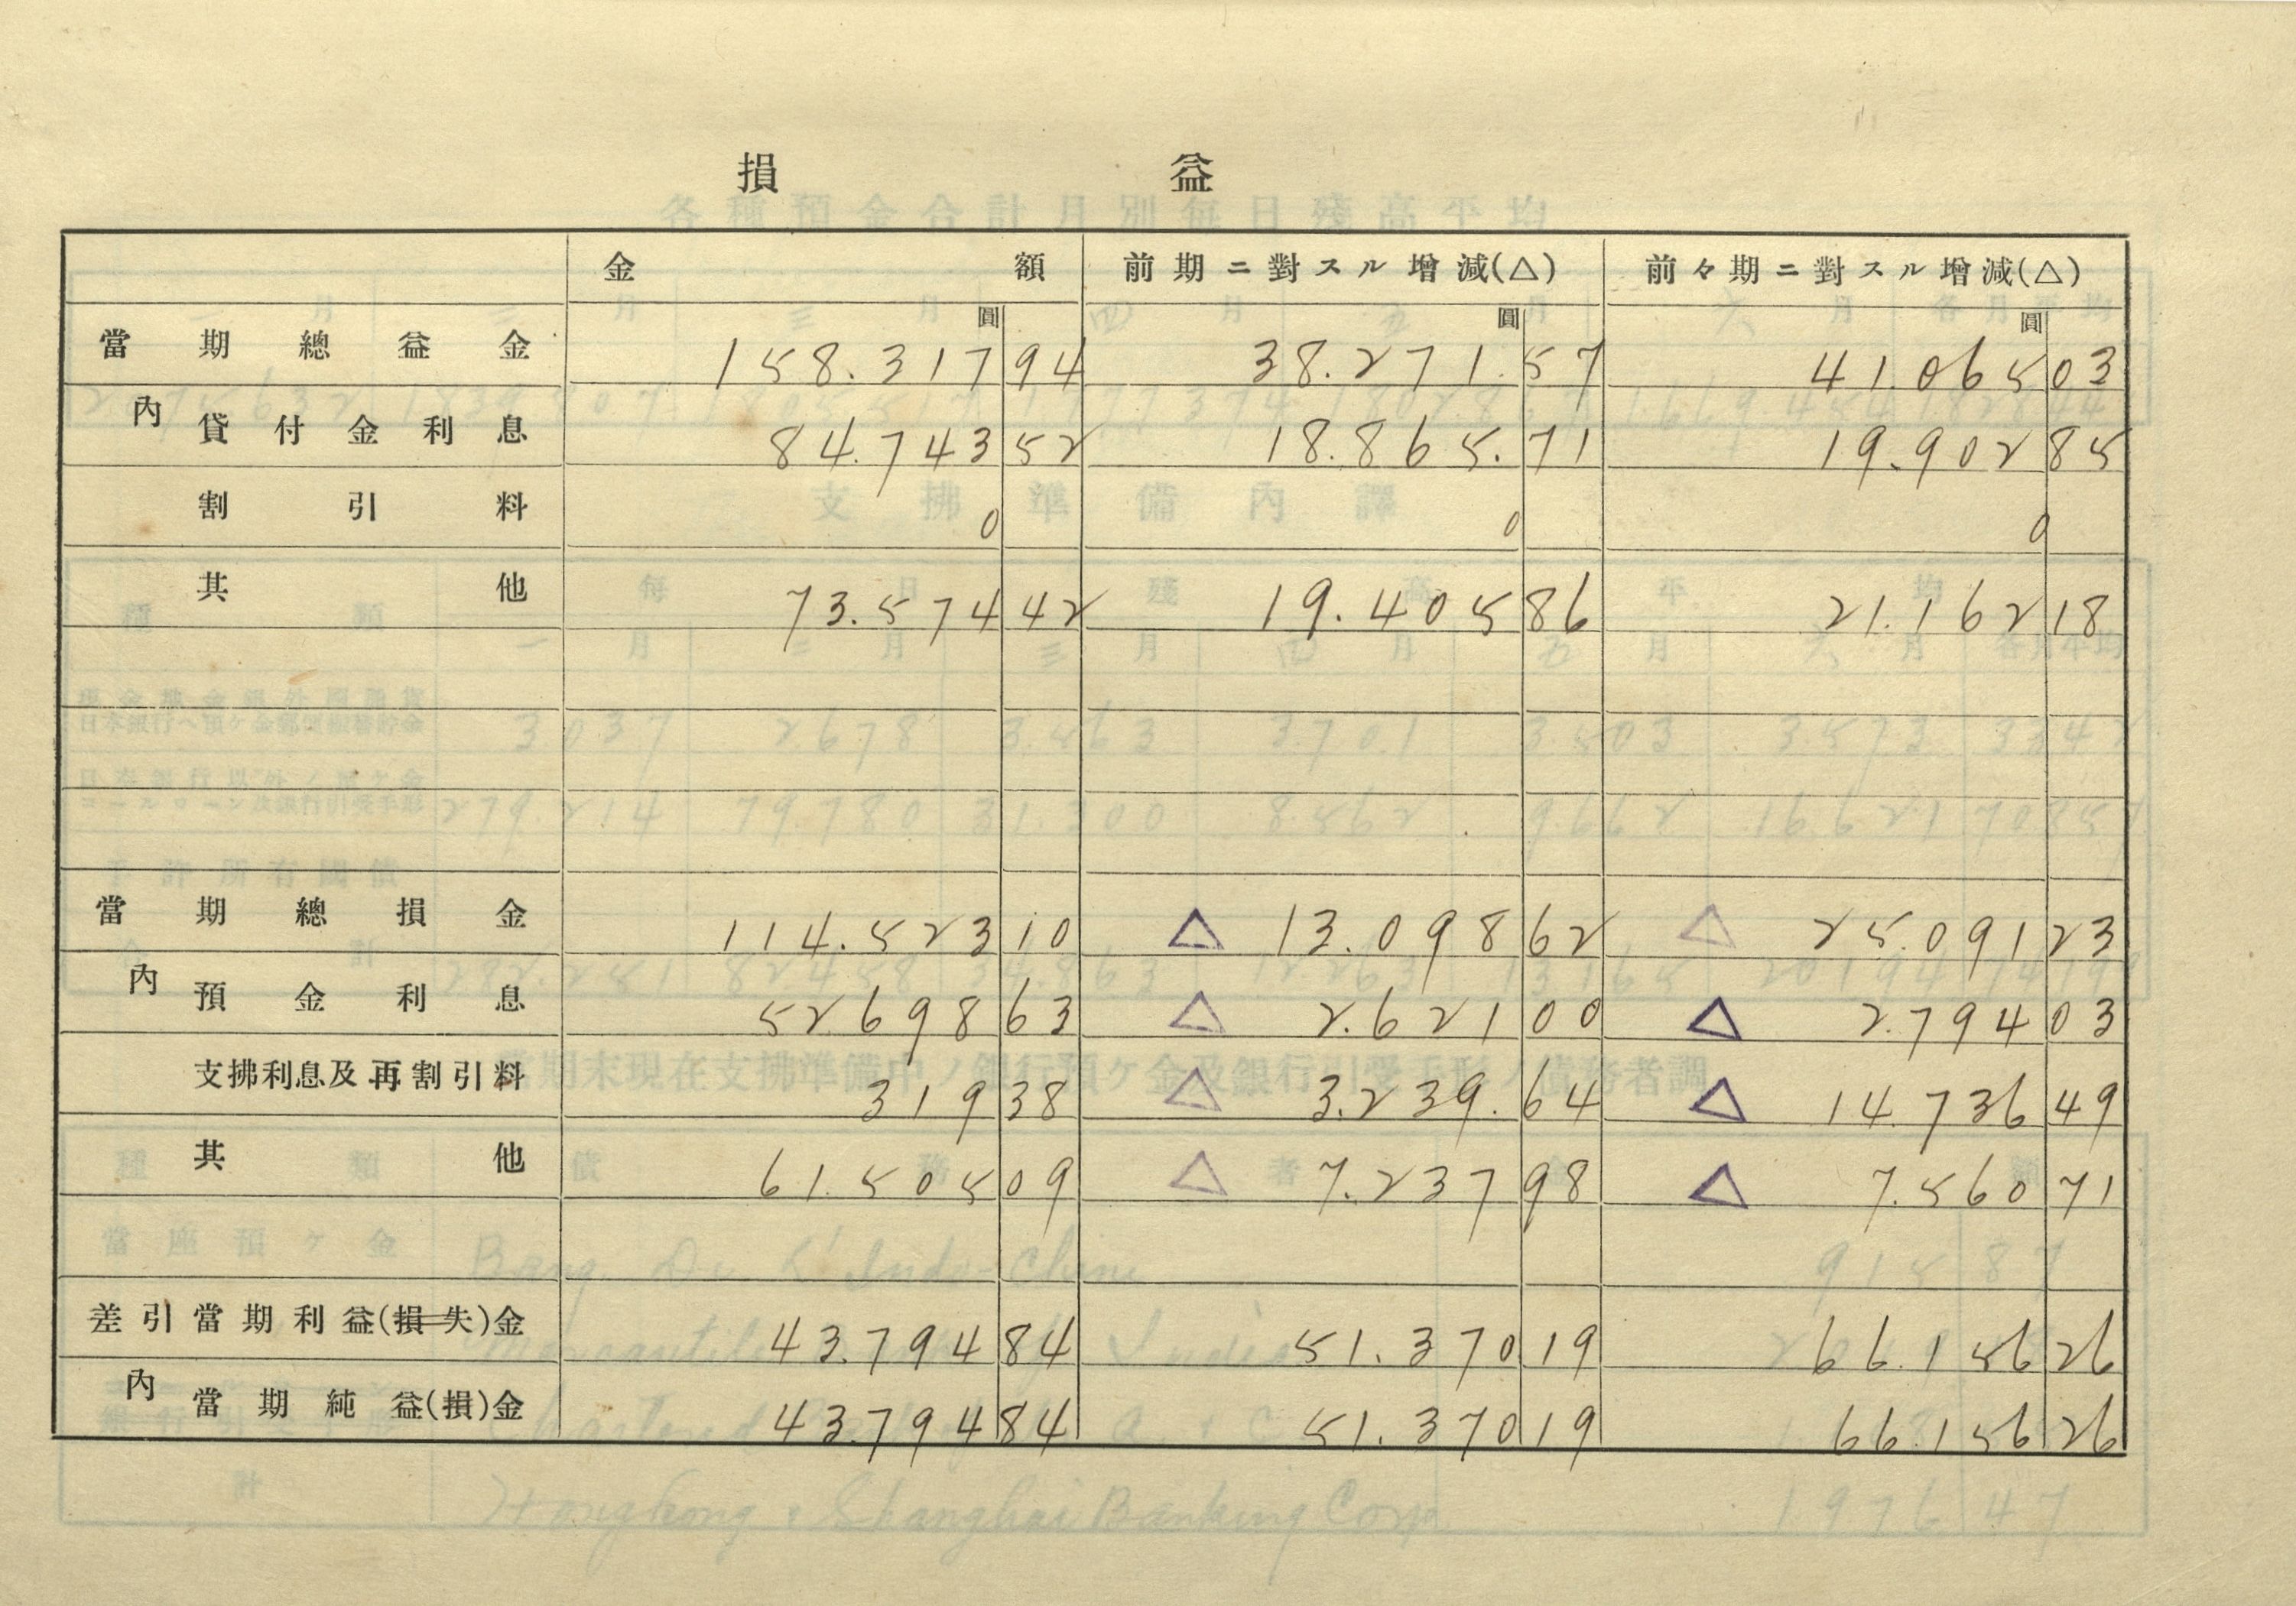 損益
金額 前期ニ對スル增減(△) 前々期ニ對スル增減(△)
圓 圓 圓
當期總益金 158.317 94 38.271.57 41.065 03
內 貸付金利息 84.743 52 18.865.71 19.902 85
割引料 0 0 0
其他 73.574 42 19.405 86 21.162 18
當期總損金 114.523 10 △ 13.098 62 △ 25.091 23
內 預金利息 52698 63 △ 2.621 00 △ 2.794 03
支拂利息及再割引料 319 38 △ 3.239.64 △ 14.736 49
其他 61.505 09 △ 7.237 98 △ 7.560 71
差引當期利益(損失)金 43.794 84 51.370 19 66.156 26
內 當期純益(損)金 43.794 84 51.370 19 66.156 26